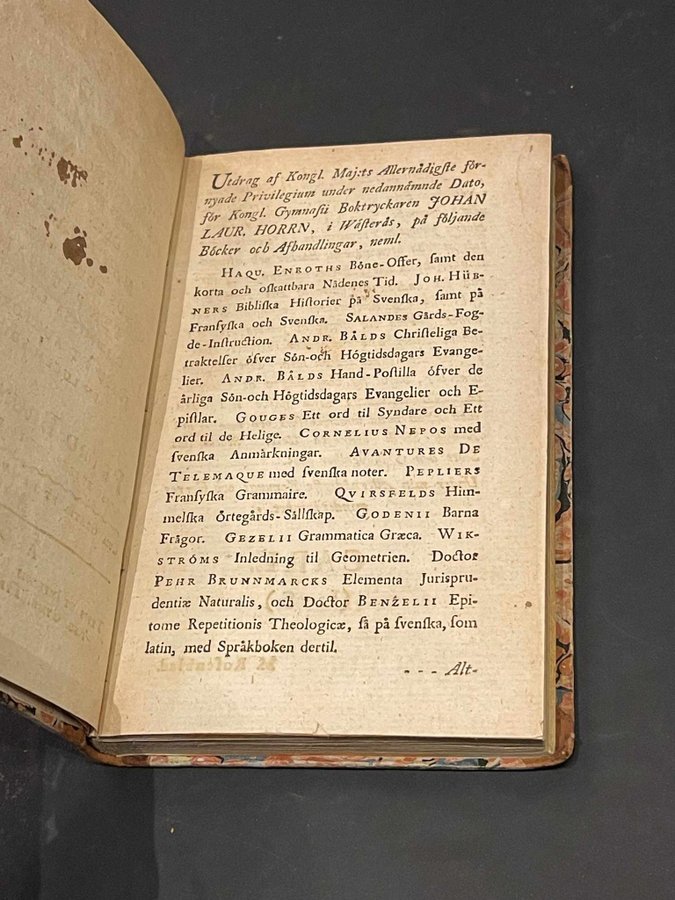 Utdrag af Kongl. Maj:ts Allernådigſte för-
nyade Privilegium under nedannämnde Dato,
för Kongl. Gymnaſii Boktryckaren JOHAN
LAUR. HORRN, i Wäſterås, på följande
Böcker och Afhandlingar, neml.
HAQU. ENROTHS Böne-Offer, ſamt den
korta och oſkattbara Nådenes Tid. JOH. HÜB-
NERS Bibliſka Hiſtorier på Svenſka, ſamt på
Franſyſka och Svenſka. SALANDES Gårds-Fog-
de-Inſtruction. ANDR. BÅLDS Chriſteliga Be-
traktelſer öfver Sön-och Högtidsdagars Evange-
lier. ANDR. BÅLDS Hand-Poſtilla öfver de
årliga Sön-och Högtidsdagars Evangelier och E-
piſtlar. GOUGES Ett ord til Syndare och Ett
ord til de Helige. CORNELIUS NEPOS med
ſvenſka Anmärkningar. AVANTURES DE
TELEMAQUE med ſvenſka noter. PEPLIERS
Franſyſka Grammaire. QVIRSFELDS Him-
melſka Örtegårds-Sällſkap. GODENII Barna
Frågor. GEZELII Grammatica Græca. WIK-
STRÖMS Inledning til Geometrien. Doctor
PEHR BRUNNMARCKS Elementa Jurispru-
dentiæ Naturalis, och Doctor BENZELII Epi-
tome Repetitionis Theologicæ, ſå på ſvenſka, ſom
latin, med Språkboken dertil.
- - - Alt-